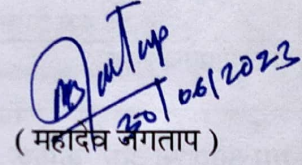 30/06/2023
( महादेव जगताप )